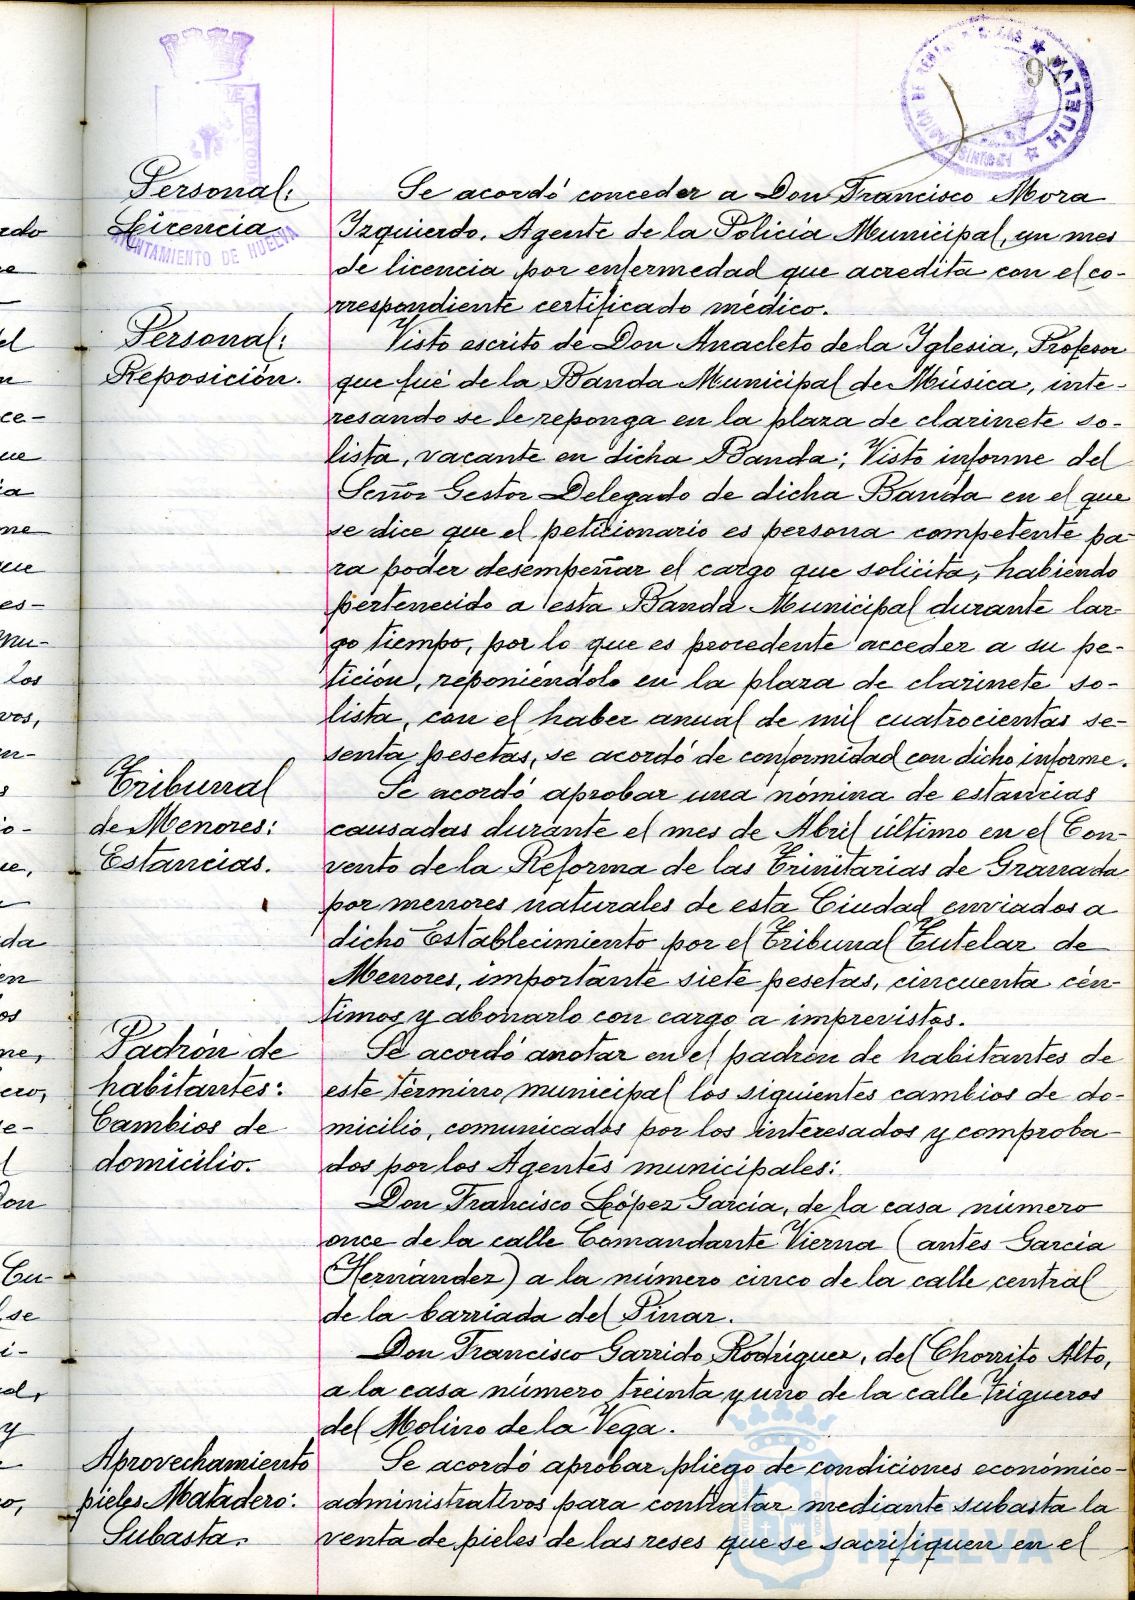 97
HUELVA
AYUNTAMIENTO DE HUELVA
Personal:
Licencia
Se acordó conceder a Don Francisco Mora
Izquierdo, Agente de la Policía Municipal, un mes
de licencia por enfermedad que acredita con el co-
rrespondiente certificado médico.
Personal:
Reposición.
Visto escrito de Don Anacleto de la Iglesia, Profesor
que fué de la Banda Municipal de Música, inte-
resando se le reponga en la plaza de clarinete so-
lista, vacante en dicha Banda; Visto informe del
Señor Gestor Delegado de dicha Banda en el que
se dice que el peticionario es persona competente pa-
ra poder desempeñar el cargo que solicita, habiendo
pertenecido a esta Banda Municipal durante lar-
go tiempo, por lo que es procedente acceder a su pe-
tición, reponiéndolo en la plaza de clarinete so-
lista, con el haber anual de mil cuatrocientas se-
senta pesetas, se acordó de conformidad con dicho informe.
Tribunal
de Menores:
Estancias.
Se acordó aprobar una nómina de estancias
causadas durante el mes de Abril último en el Con-
vento de la Reforma de las Trinitarias de Granada
por menores naturales de esta Ciudad enviados a
dicho Establecimiento por el Tribunal Tutelar de
Menores, importante siete pesetas, cincuenta cén-
timos y abonarlo con cargo a imprevistos.
Padrón de
habitantes:
Cambios de
domicilio.
Se acordó anotar en el padrón de habitantes de
este término municipal los siguientes cambios de do-
micilio, comunicados por los interesados y comproba-
dos por los Agentes municipales:
Don Francisco López García, de la casa número
once de la calle Comandante Vierna (antes García
Hernández) a la número cinco de la calle central
de la barriada del Pinar.
Don Francisco Garrido Rodríguez, del Chorrito Alto,
a la casa número treinta y uno de la calle Trigueros
del Molino de la Vega.
Aprovechamiento
pieles Matadero:
Subasta.
Se acordó aprobar pliego de condiciones económico-
administrativos para contratar mediante subasta la
venta de pieles de las reses que se sacrifiquen en el
HUELVA